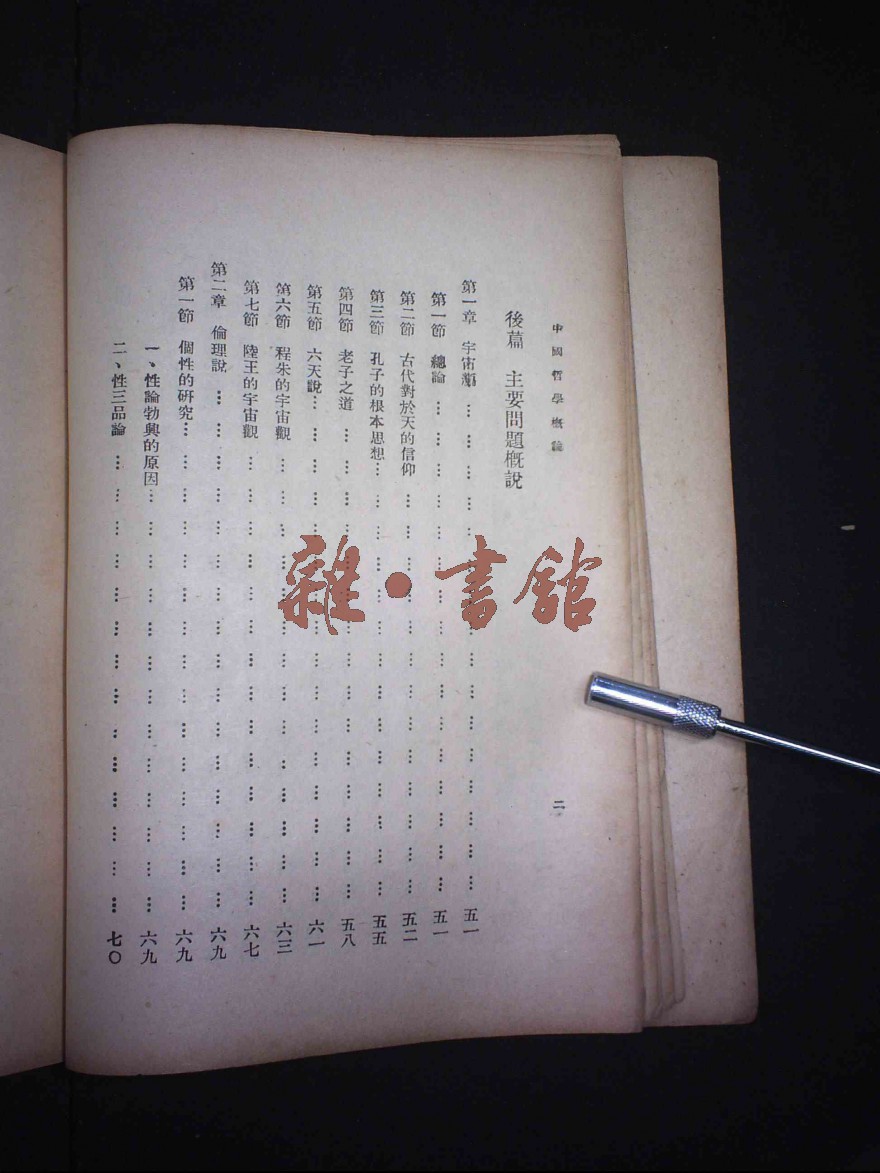 中國哲學概論
二
後篇 主要問題概說
第一章 宇宙論………五一
第一節 總論………五一
第二節 古代對於天的信仰………五二
第三節 孔子的根本思想………五五
第四節 老子之道………五八
第五節 六天說………六一
第六節 程朱的宇宙觀………六三
第七節 陸王的宇宙觀………六七
第二章 倫理說………六九
第一節 個性的研究………六九
一、性論勃興的原因………六九
二、性三品論………七〇
雜·書館